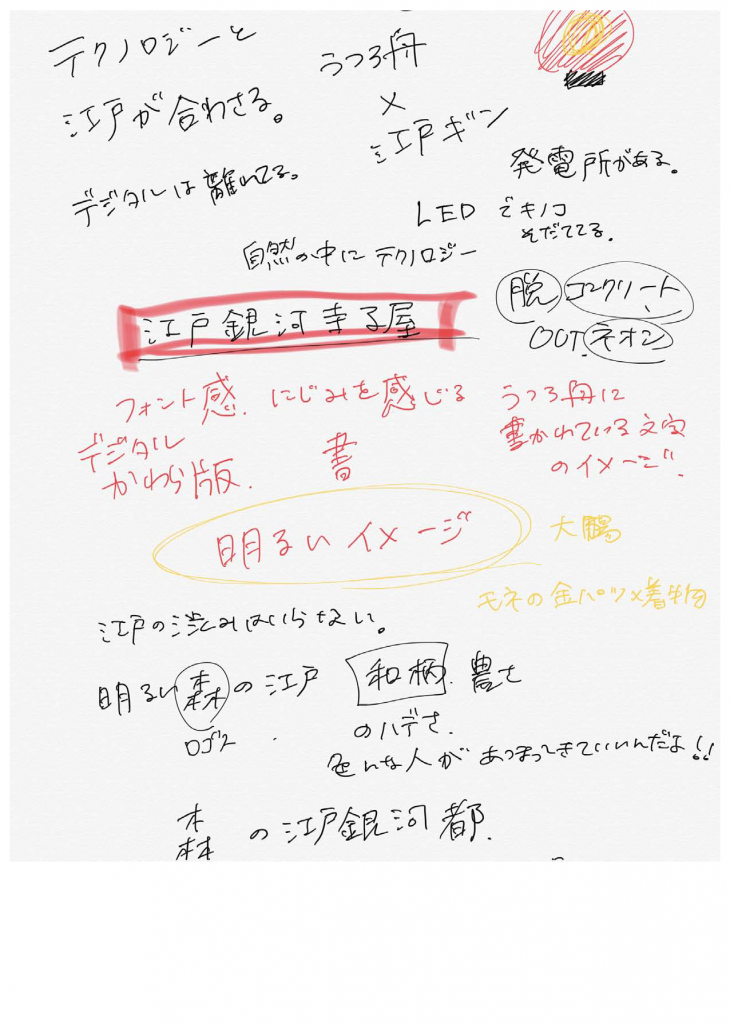 テクノロジーと
江戸が合わさる。
うつろ舟
×
江戸ギン
デジタルは離れてる。
発電所がある。
LEDでキノコ
そだててる。
自然の中にテクノロジー
江戸銀河寺子屋
脱コンクリート
OUT.ネオン
フォント感.にじみを感じる
デジタル
かわら版.
書
うつろ舟に
書かれている文字
のイメージ.
明るいイメージ
大鵬
モネの金パツ×着物
江戸の渋みはいらない。
明るい森の江戸
ロゴス
和柄.豊さ
のハデさ.
色んな人があつまってきていいんだよ!!
森の江戸銀河都.